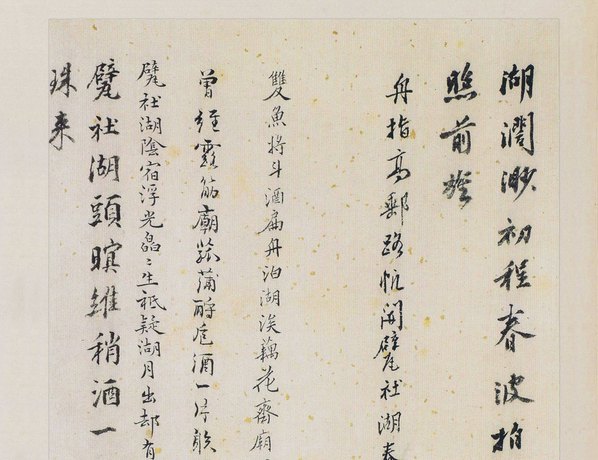 湖濶渺初程春波拍
煦前
舟指高郵路帆開甓社湖春
雙魚將斗酒扁舟泊湖涘藕花齋廟
曾經露筋廟菰蒲酹卮酒一片
甓社湖陰宿浮光晶〻生祗疑湖月出却有
甓社湖頭暝維稍酒一
珠来